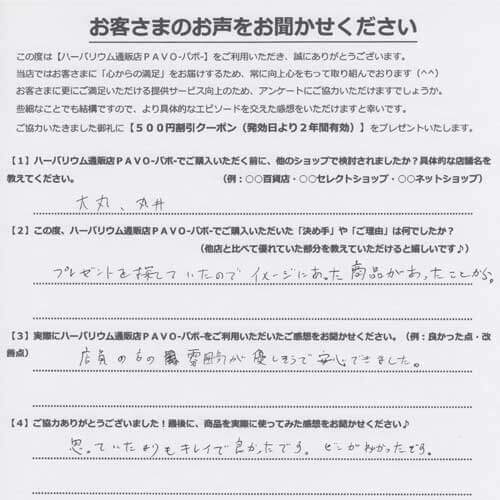 お客さまのお声をお聞かせください
この度は【ハーバリウム通販店ＰＡＶＯ-パボ-】をご利用いただき、誠にありがとうございます。
当店ではお客さまに「心からの満足」をお届けするため、常に向上心をもって取り組んでおります（^^）
お客さまに更にご満足いただける提供サービス向上のため、アンケートにご協力いただけますでしょうか。
些細なことでも結構ですので、より具体的なエピソードを交えた感想をいただけますと幸いです。
ご協力いただきました御礼に【５００円割引クーポン（発効日より２年間有効）】をプレゼントいたします。
【１】ハーバリウム通販店ＰＡＶＯ-パボ-でご購入いただく前に、他のショップで検討されましたか？具体的な店舗名を
教えてください。　（例：○○百貨店・○○セレクトショップ・○○ネットショップ）
大丸、丸井
【２】この度、ハーバリウム通販店ＰＡＶＯ-パボ-でご購入いただいた「決め手」や「ご理由」は何でしたか？
（他店と比べて優れていた部分を教えていただけると嬉しいです♪）
プレゼントを探していたので イメージにあった商品があったことから。
【３】実際にハーバリウム通販店ＰＡＶＯ-パボ-をご利用いただいたご感想をお聞かせください。（例：良かった点・改
善点）
店員の方の雰囲気が優しそうで安心できました。
【４】ご協力ありがとうございました！最後に、商品を実際に使ってみた感想をお聞かせください♪
思っていたよりもキレイで良かったです。